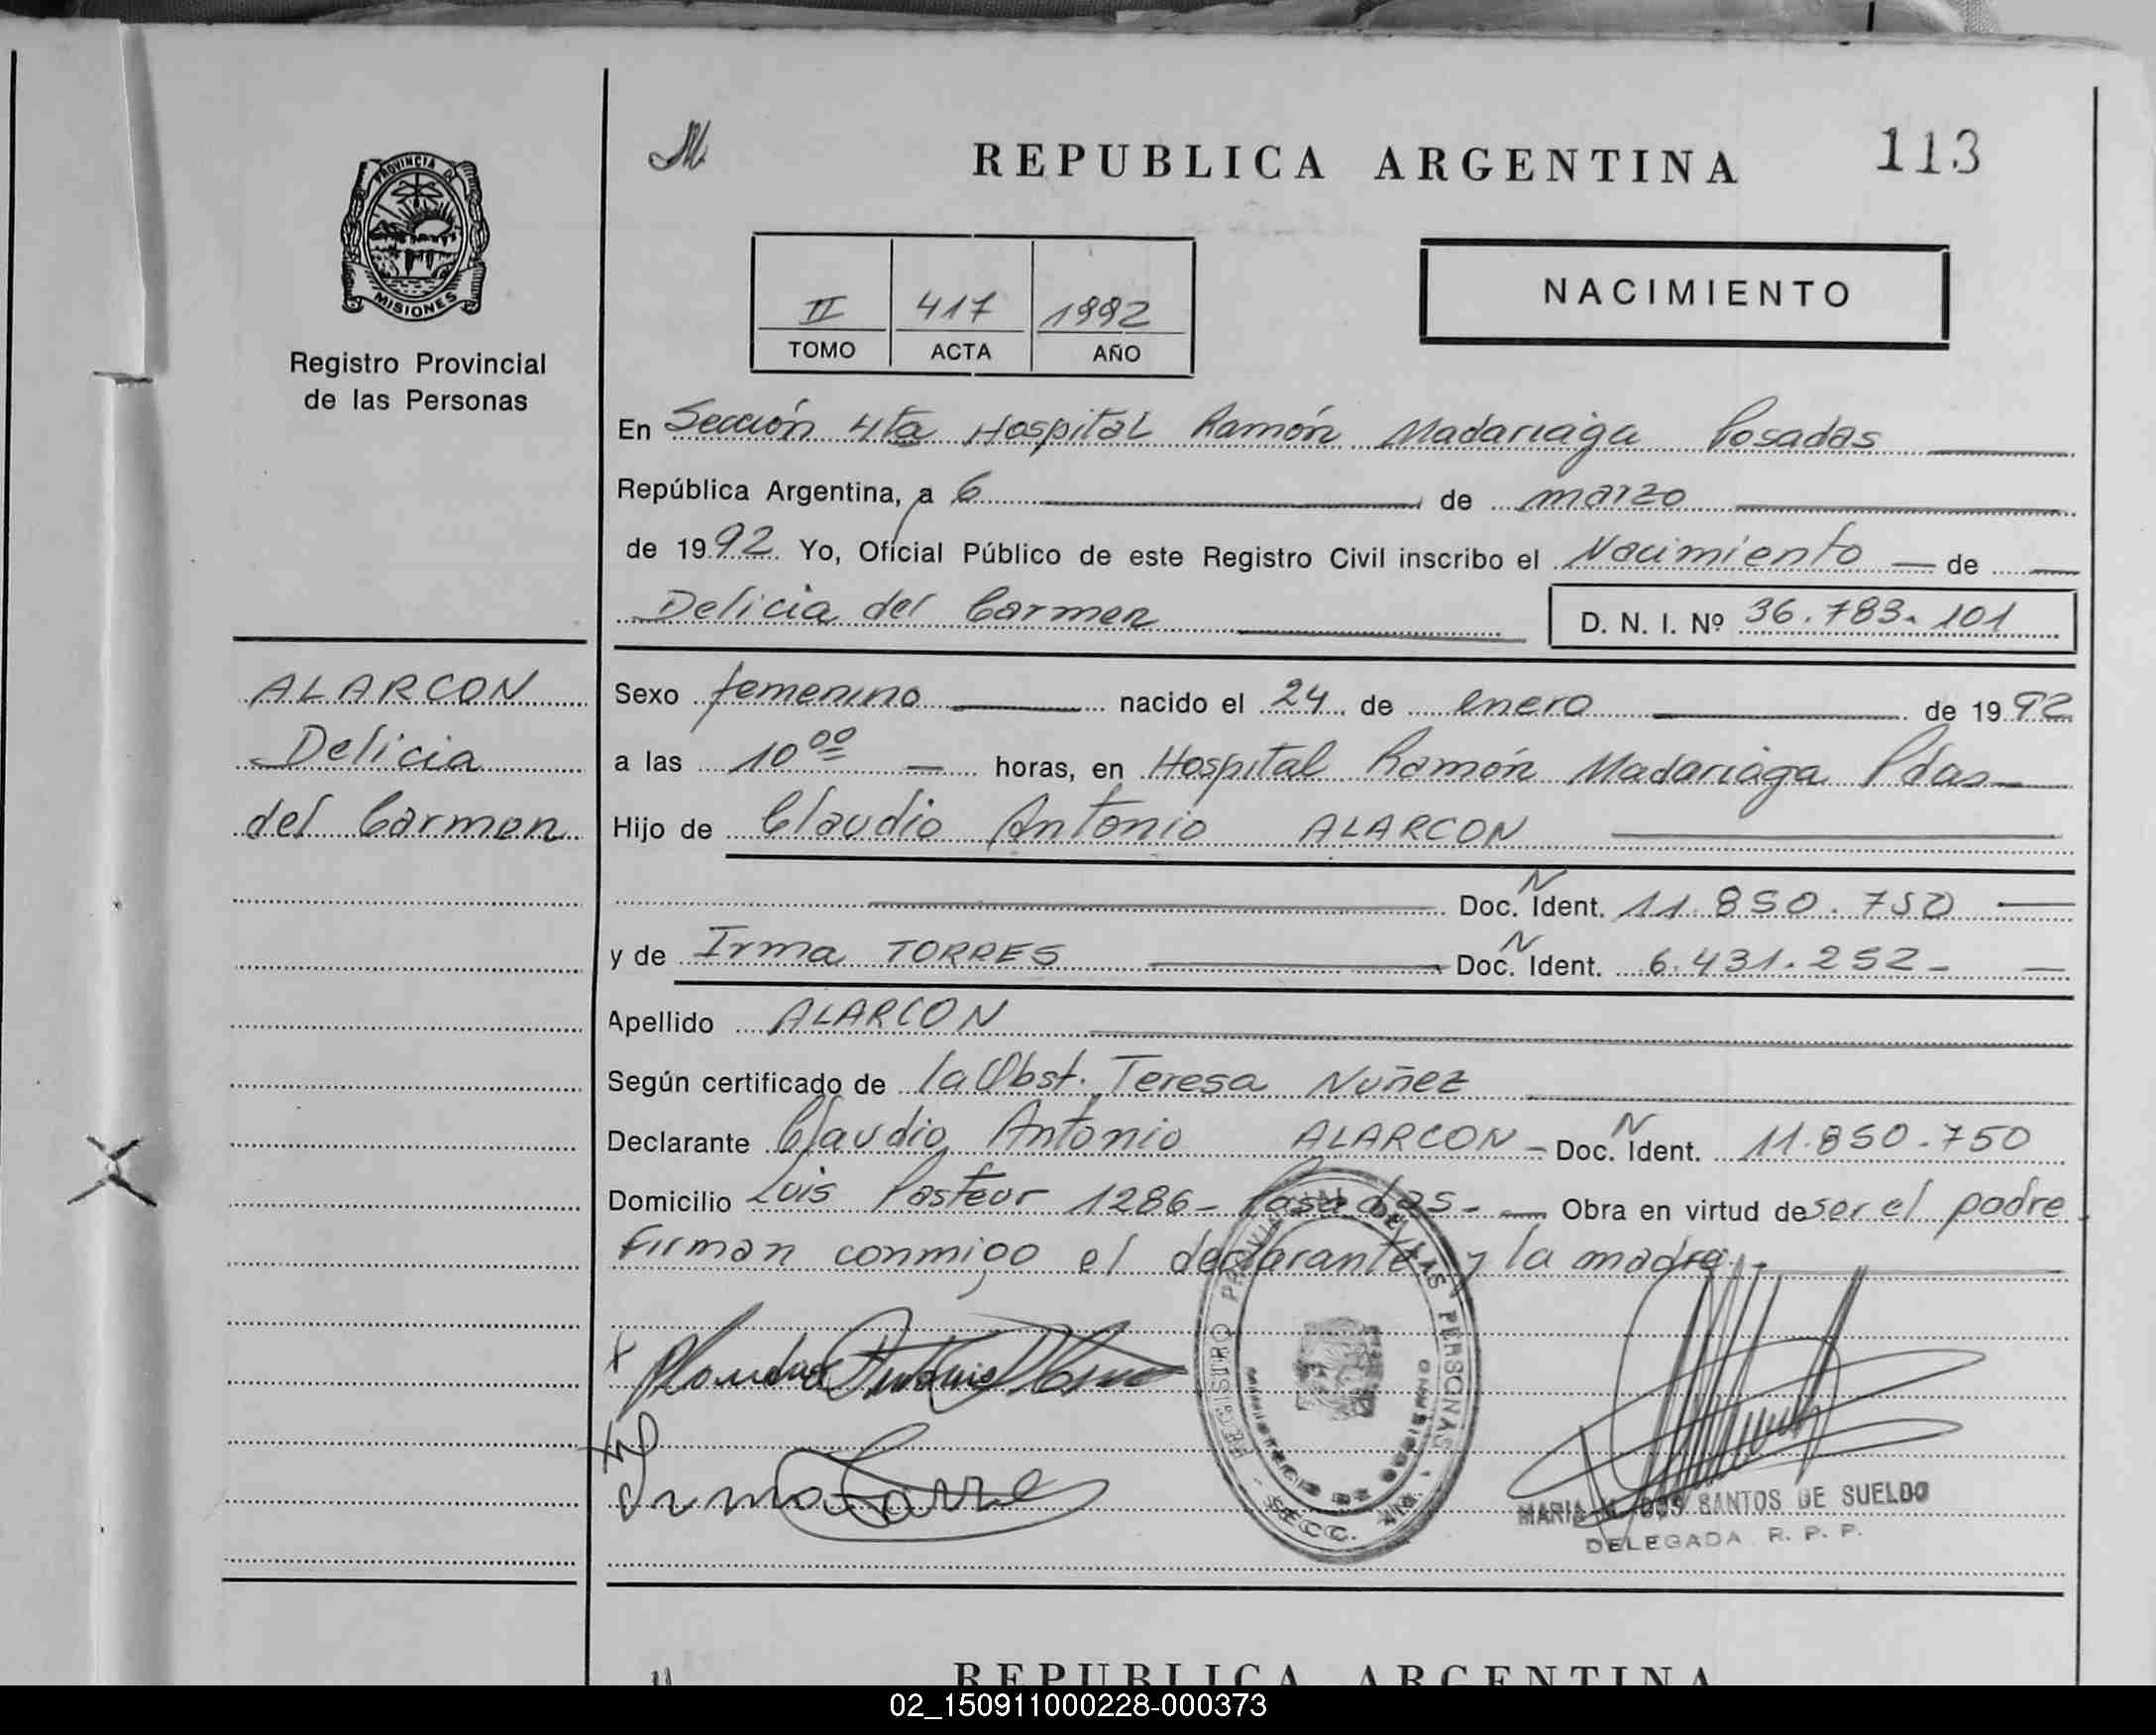 PROVINCIA DE
MISIONES
Registro Provincial
de las Personas
ALARCON
Delicia
del Carmen
REPUBLICA ARGENTINA 113
II 417 1992
TOMO ACTA AÑO
NACIMIENTO
En Sección 4ta Hospital Ramón Madariaga Posadas
República Argentina, a 6 de marzo
de 1992 Yo, Oficial Público de este Registro Civil inscribo el Nacimiento de
Delicia del Carmen D. N. I. Nº 36.783.101
Sexo femenino nacido el 24 de enero de 1992
a las 10 00 horas, en Hospital Ramón Madariaga Pdas
Hijo de Claudio Antonio ALARCON
Doc. N Ident. 11.850.750
y de Irma TORRES Doc. N Ident. 6.431.252-
Apellido ALARCON
Según certificado de la Obst. Teresa Nuñez
Declarante Claudio Antonio ALARCON - Doc. N Ident. 11.850.750
Domicilio Luis Pasteur 1286- Posadas- Obra en virtud de ser el padre
firman conmigo el declarante y la madre.-
Irma Torres
REGISTRO PERSONAS
SECC.
MARIA DOS SANTOS DE SUELDO
DELEGADA R. P. P.
REPUBLICA ARGENTINA
02_150911000228-000373